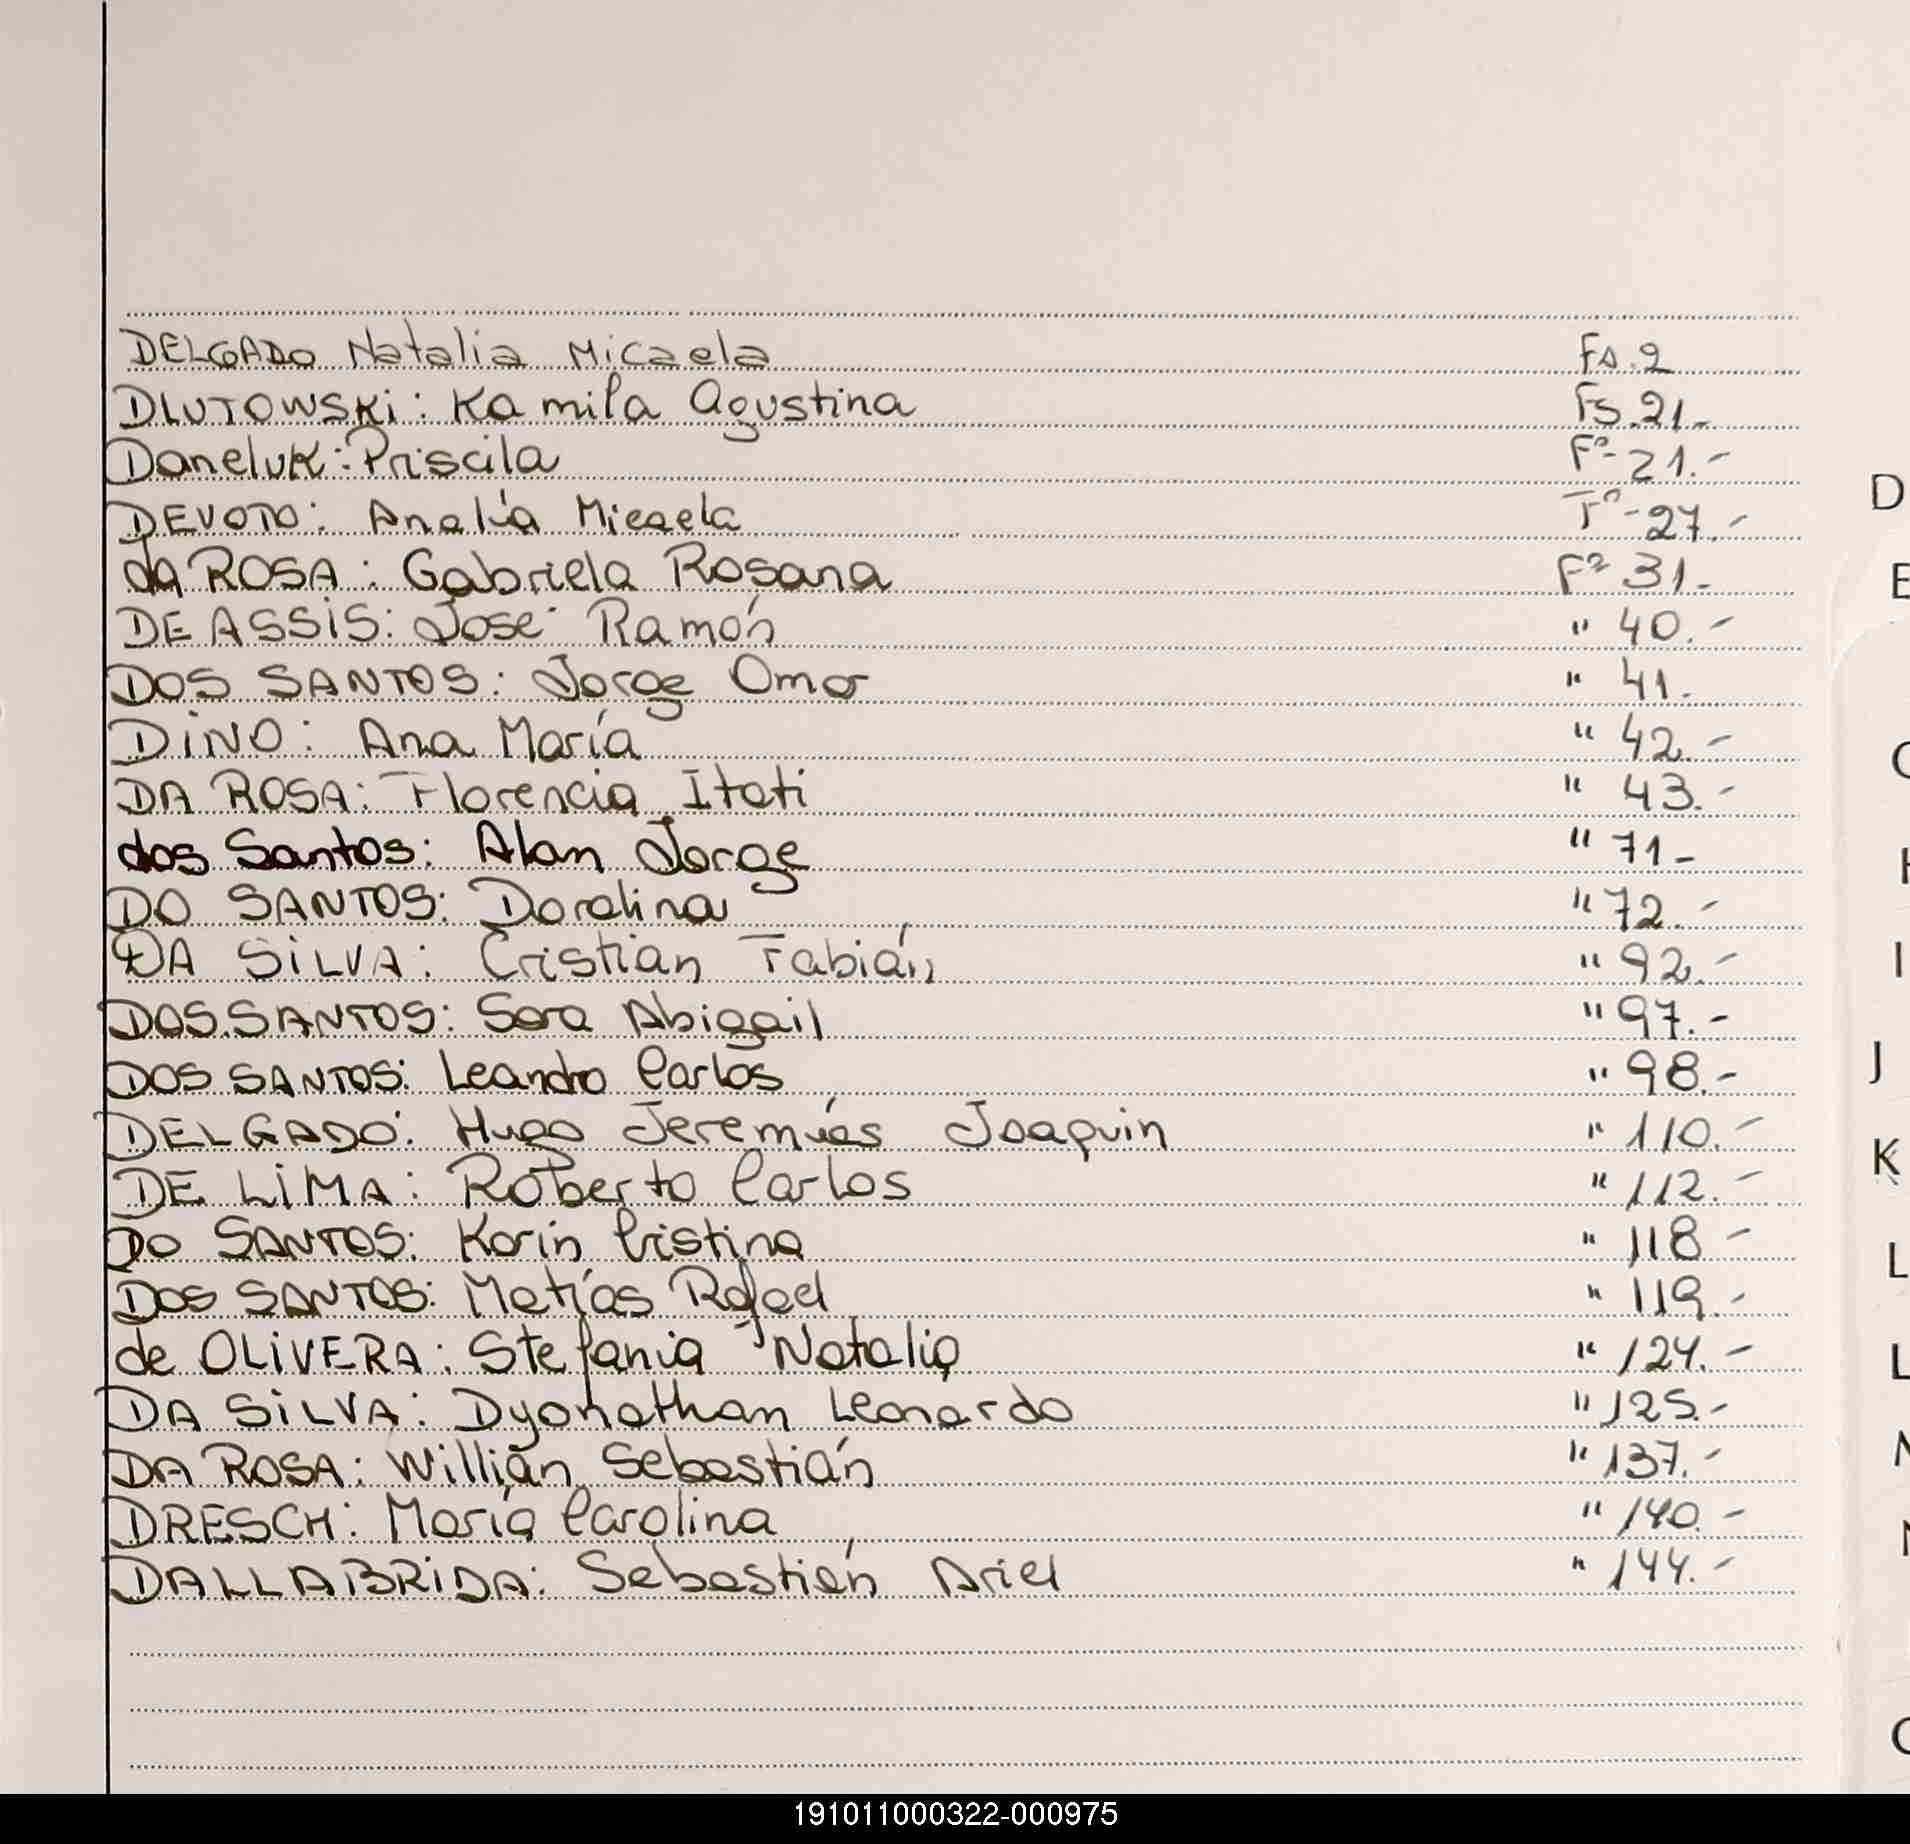 DELGADO Natalia Micaela Fs. 2
DLUTOWSKi: Kamila Agustina Fs. 21.-
Daneluk: Priscila Fº 21.-
DEVOTO: Analía Micaela Fº 27.-
da ROSA: Gabriela Rosana Fº 31.-
DE ASSiS: José Ramón " 40.-
DOS SANTOS: Jorge Omar " 41.-
DiNO: Ana María " 42.-
DA ROSA: Florencia Itati " 43.-
dos Santos: Alan Jorge " 71-
DO SANTOS: Doralina " 72.-
DA SiLVA: Cristian Fabián " 92.-
DOS.SANTOS: Sara Abigail " 97.-
DOS SANTOS: Leandro Carlos " 98.-
DELGADO: Hugo Jeremías Joaquin " 110.-
DE LiMA: Roberto Carlos " 112.-
DO SANTOS: Karin Cristina " 118-
DOS SANTOS: Matías Rafael " 119.-
de OLiVERA: Stefania Natalia " 124.-
DA SiLVA: Dyonathan Leonardo " 125.-
DA ROSA: Willián Sebastián " 137.-
DRESCH: María Carolina " 140.-
DALLABRiDA: Sebastián Ariel " 144.-
D
E
J
K
L
191011000322-000975